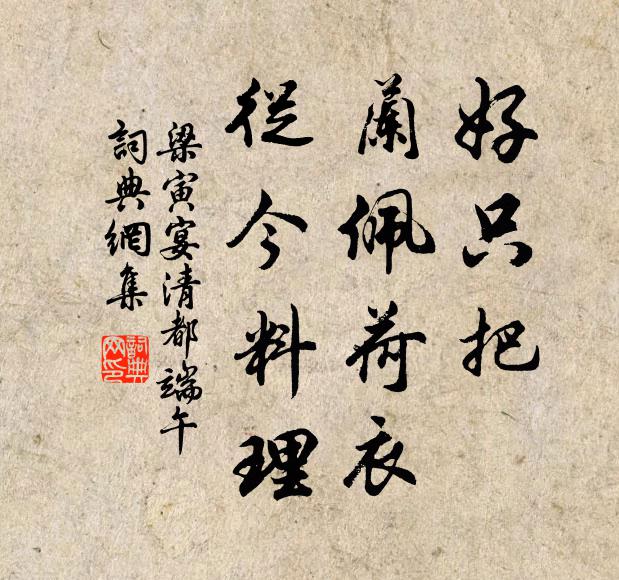 好只把
蘭佩荷衣
從今料理
梁寅宴清都端午
詞典網集
詞典網印